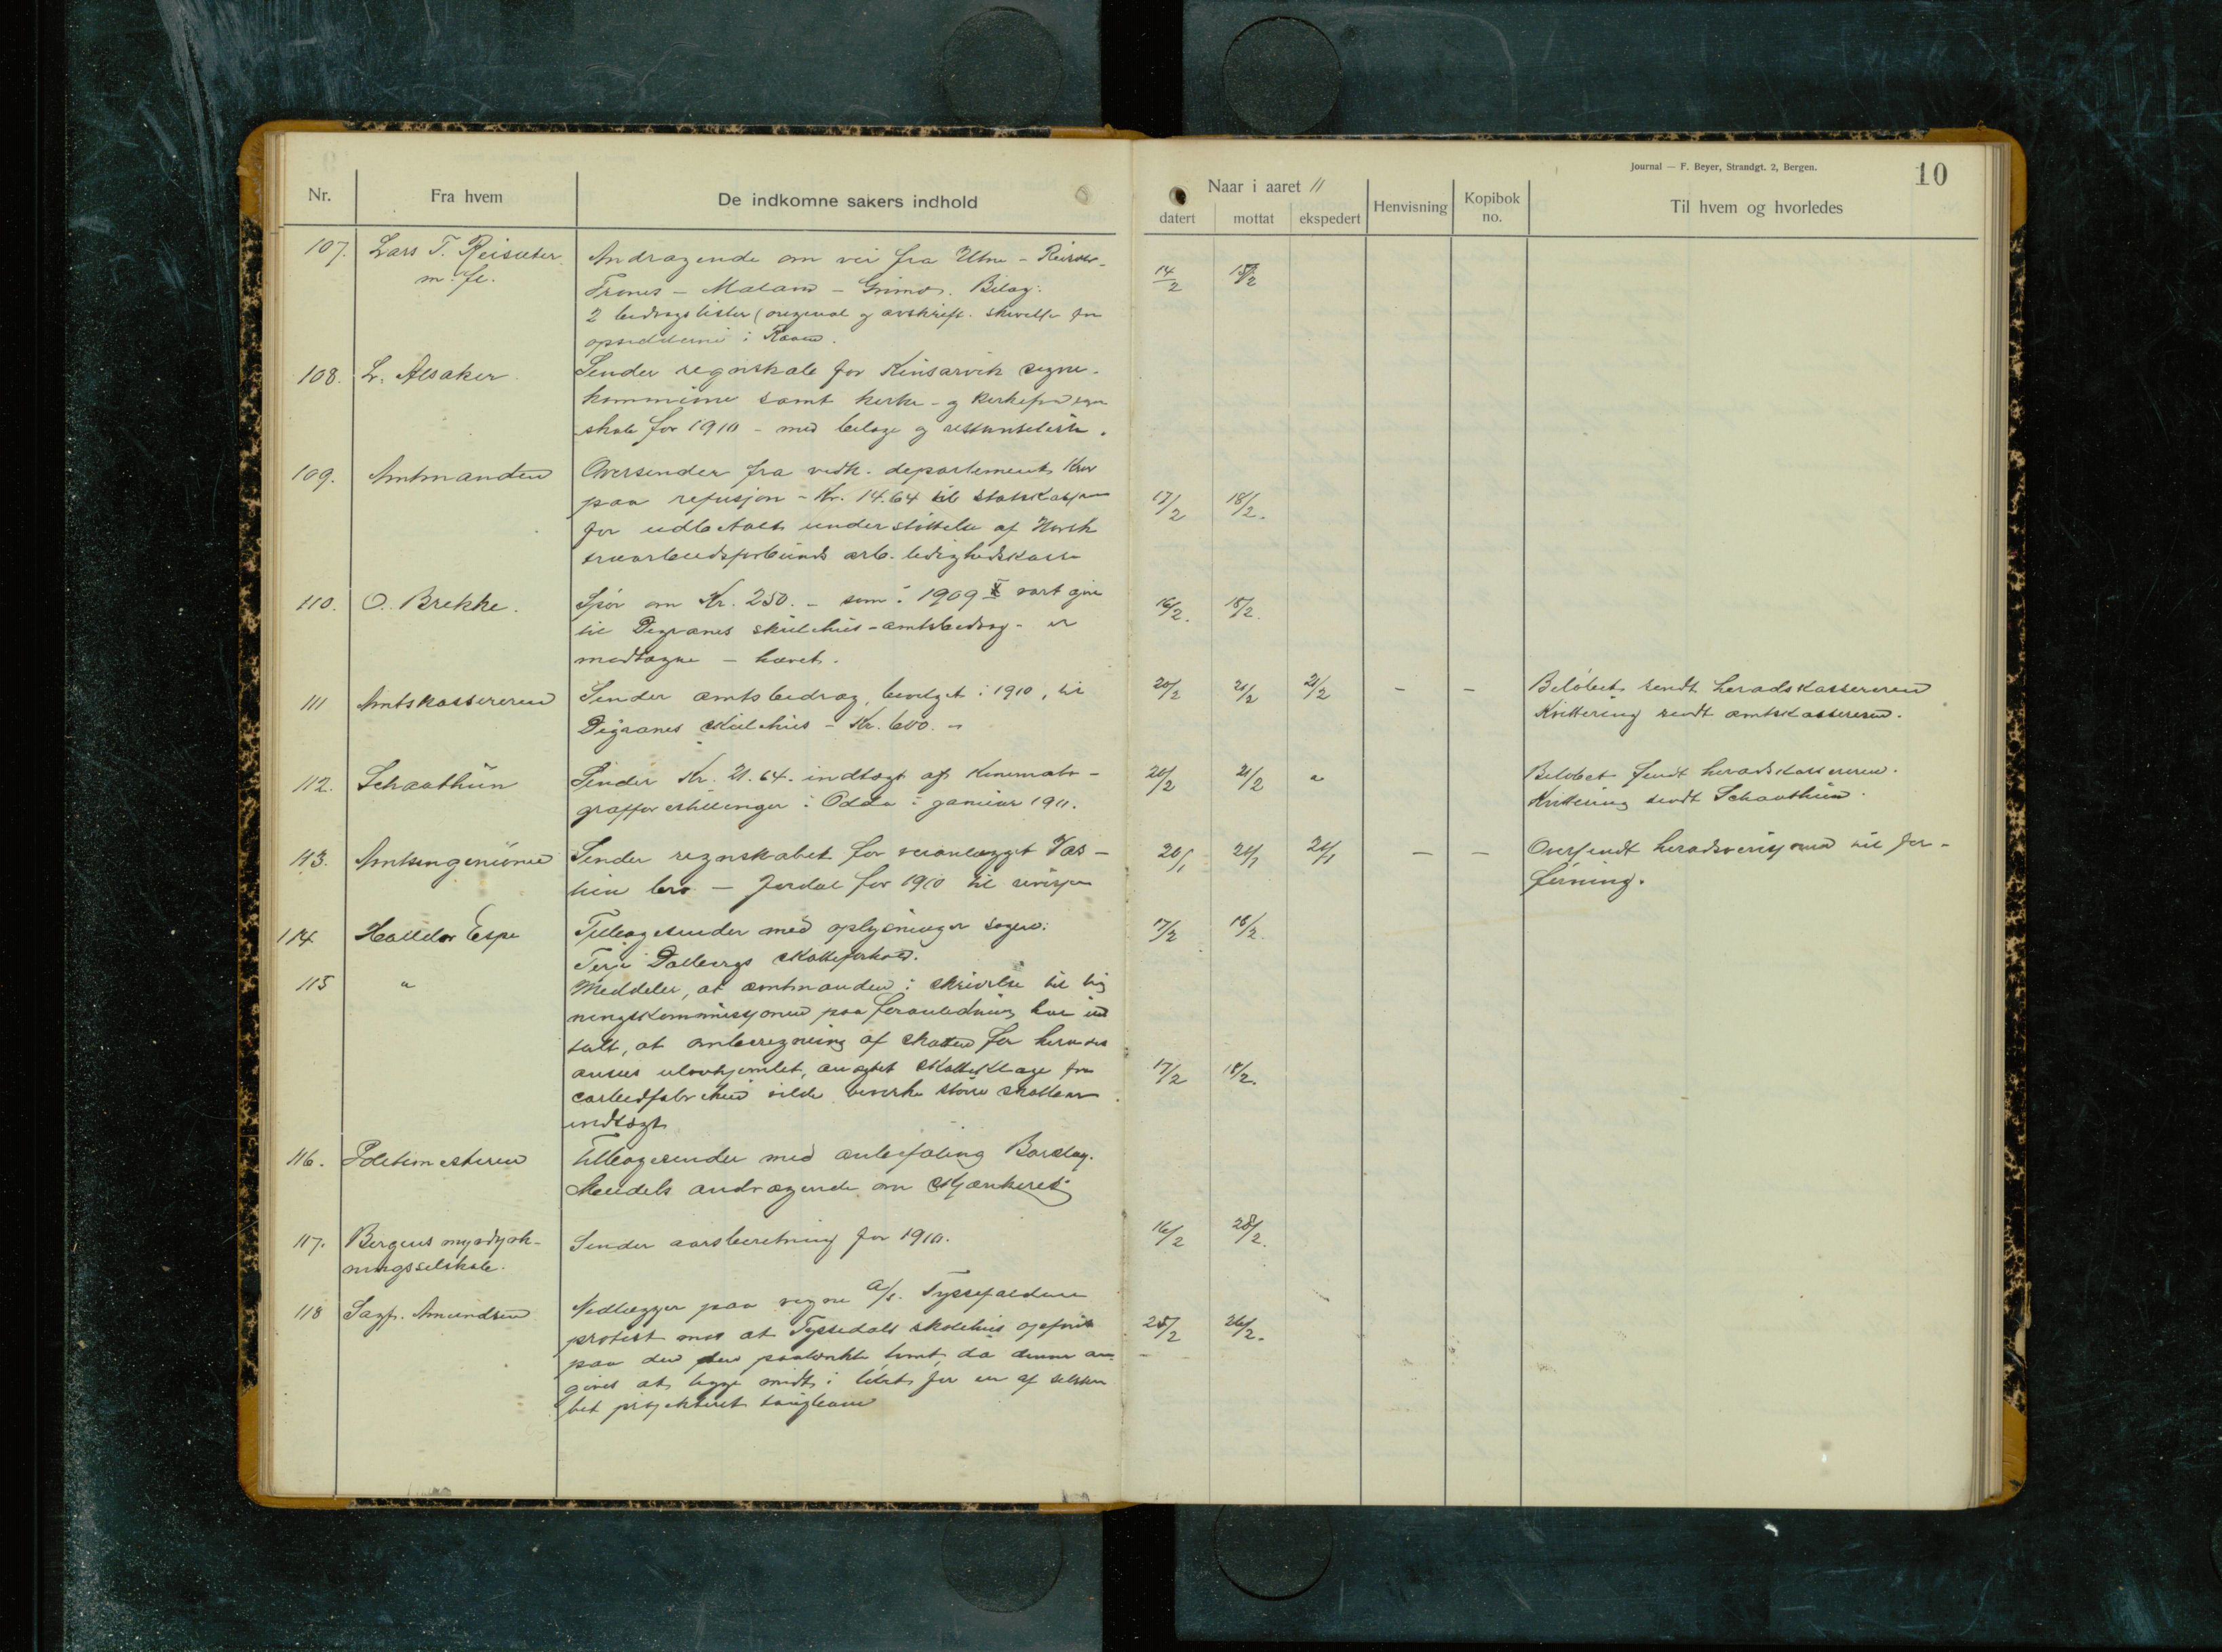 Journal — F. Beyer, Strandgt. 2, Bergen.
10
Nr.
Fra hvem
De indkomne sakers indhold
Naar i aaret 11
datert
mottat
ekspedert
Henvisning
Kopibok no.
Til hvem og hvorledes
107. Lars T. Reisæter Andragende om vei fra Utne - 14/2
m. fl. Trones - - . Bilag:
2 bidragslister (original og avskrift.
opsidderne i
108. L. Alsaker Sender regnskab for Kinsarvik sogne-
kommune samt kirke- og
skab for 1910 - med bilage og restanseliste.
109. Amtmanden Oversender fra vedk. departement krav
paa refusjon - Kr. 14.64 til statskassen 17/2 18/2.
for udbetalt understøttelse af Norsk
arb. ledighedskasse
110. O. Brekke. Spør om Kr. 250. - som i 1909 vart give 16/2. 18/2.
til Digranes skulehus - amtsbidrag - er
medtagne - hævet.
111 Amtskassereren Sender amtsbidrag, bevilget i 1910, til 20/2 21/2 21/2 - - Beløbet sendt heradskassereren
Digranes skulehus - Kr. 600. - Kvittering sendt amtskassereren.
112. Schaathun Sender Kr. 21.64. indtægt af kinemato- 20/2 21/2 " Beløbet sendt heradskassereren.
graffforestillinger i Odda i januar 1911. Kvittering sendt Schaathun.
113. Amtsingeniøren Sender regnskabet for veianlægget Vas- 20/1 21/1 21/1 - - Oversendt heradsrevisjonen til for-
bro - Jordal for 1910 til revisjon føining.
114 Halldor Espe Tilbagesender med oplysninger 17/2 18/2.
Terje Dalbergs skatteforhold.
115 " Meddeler, at amtmanden i skrivelse til lig
ningskommissjonen paa foranledning har ud
talt, at omberegning af skatten for
anses ulovhjemlet, skatteklage fra 17/2 18/2.
vilde bevirke større
indtægt
116. Politimesteren Tilbagesender med anbefaling
andragende om skjænkeret
117. Bergens myrdyrk- Sender aarsberetning for 1910. 16/2 28/2.
ningsselskab.
118 Sagf. Amundsen Nedlægger paa vegne A/S. Tyssefaldene
protest mod at Tyssedals skolehus opføres 25/2 26/2.
paa den den paatænkte tomt, da denne an-
gives at ligge midt i løbet for en af selska
bet projekteret taugbane